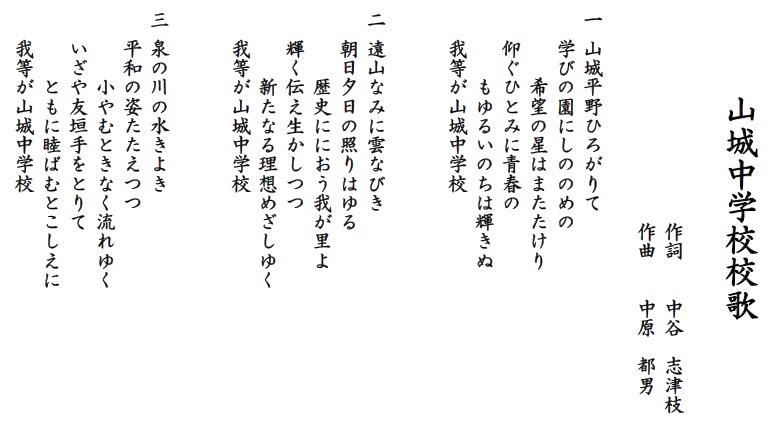 山城中学校校歌
作詞 中谷 志津枝
作曲 中原 都男
一 山城平野ひろがりて
学びの園にしののめの
希望の星はまたたけり
仰ぐひとみに青春の
もゆるいのちは輝きぬ
我等が山城中学校
二 遠山なみに雲なびき
朝日夕日の照りはゆる
歴史ににおう我が里よ
輝く伝え生かしつつ
新たなる理想めざしゆく
我等が山城中学校
三 泉の川の水きよき
平和の姿たたえつつ
小やむときなく流れゆく
いざや友垣手をとりて
ともに睦ばむとこしえに
我等が山城中学校